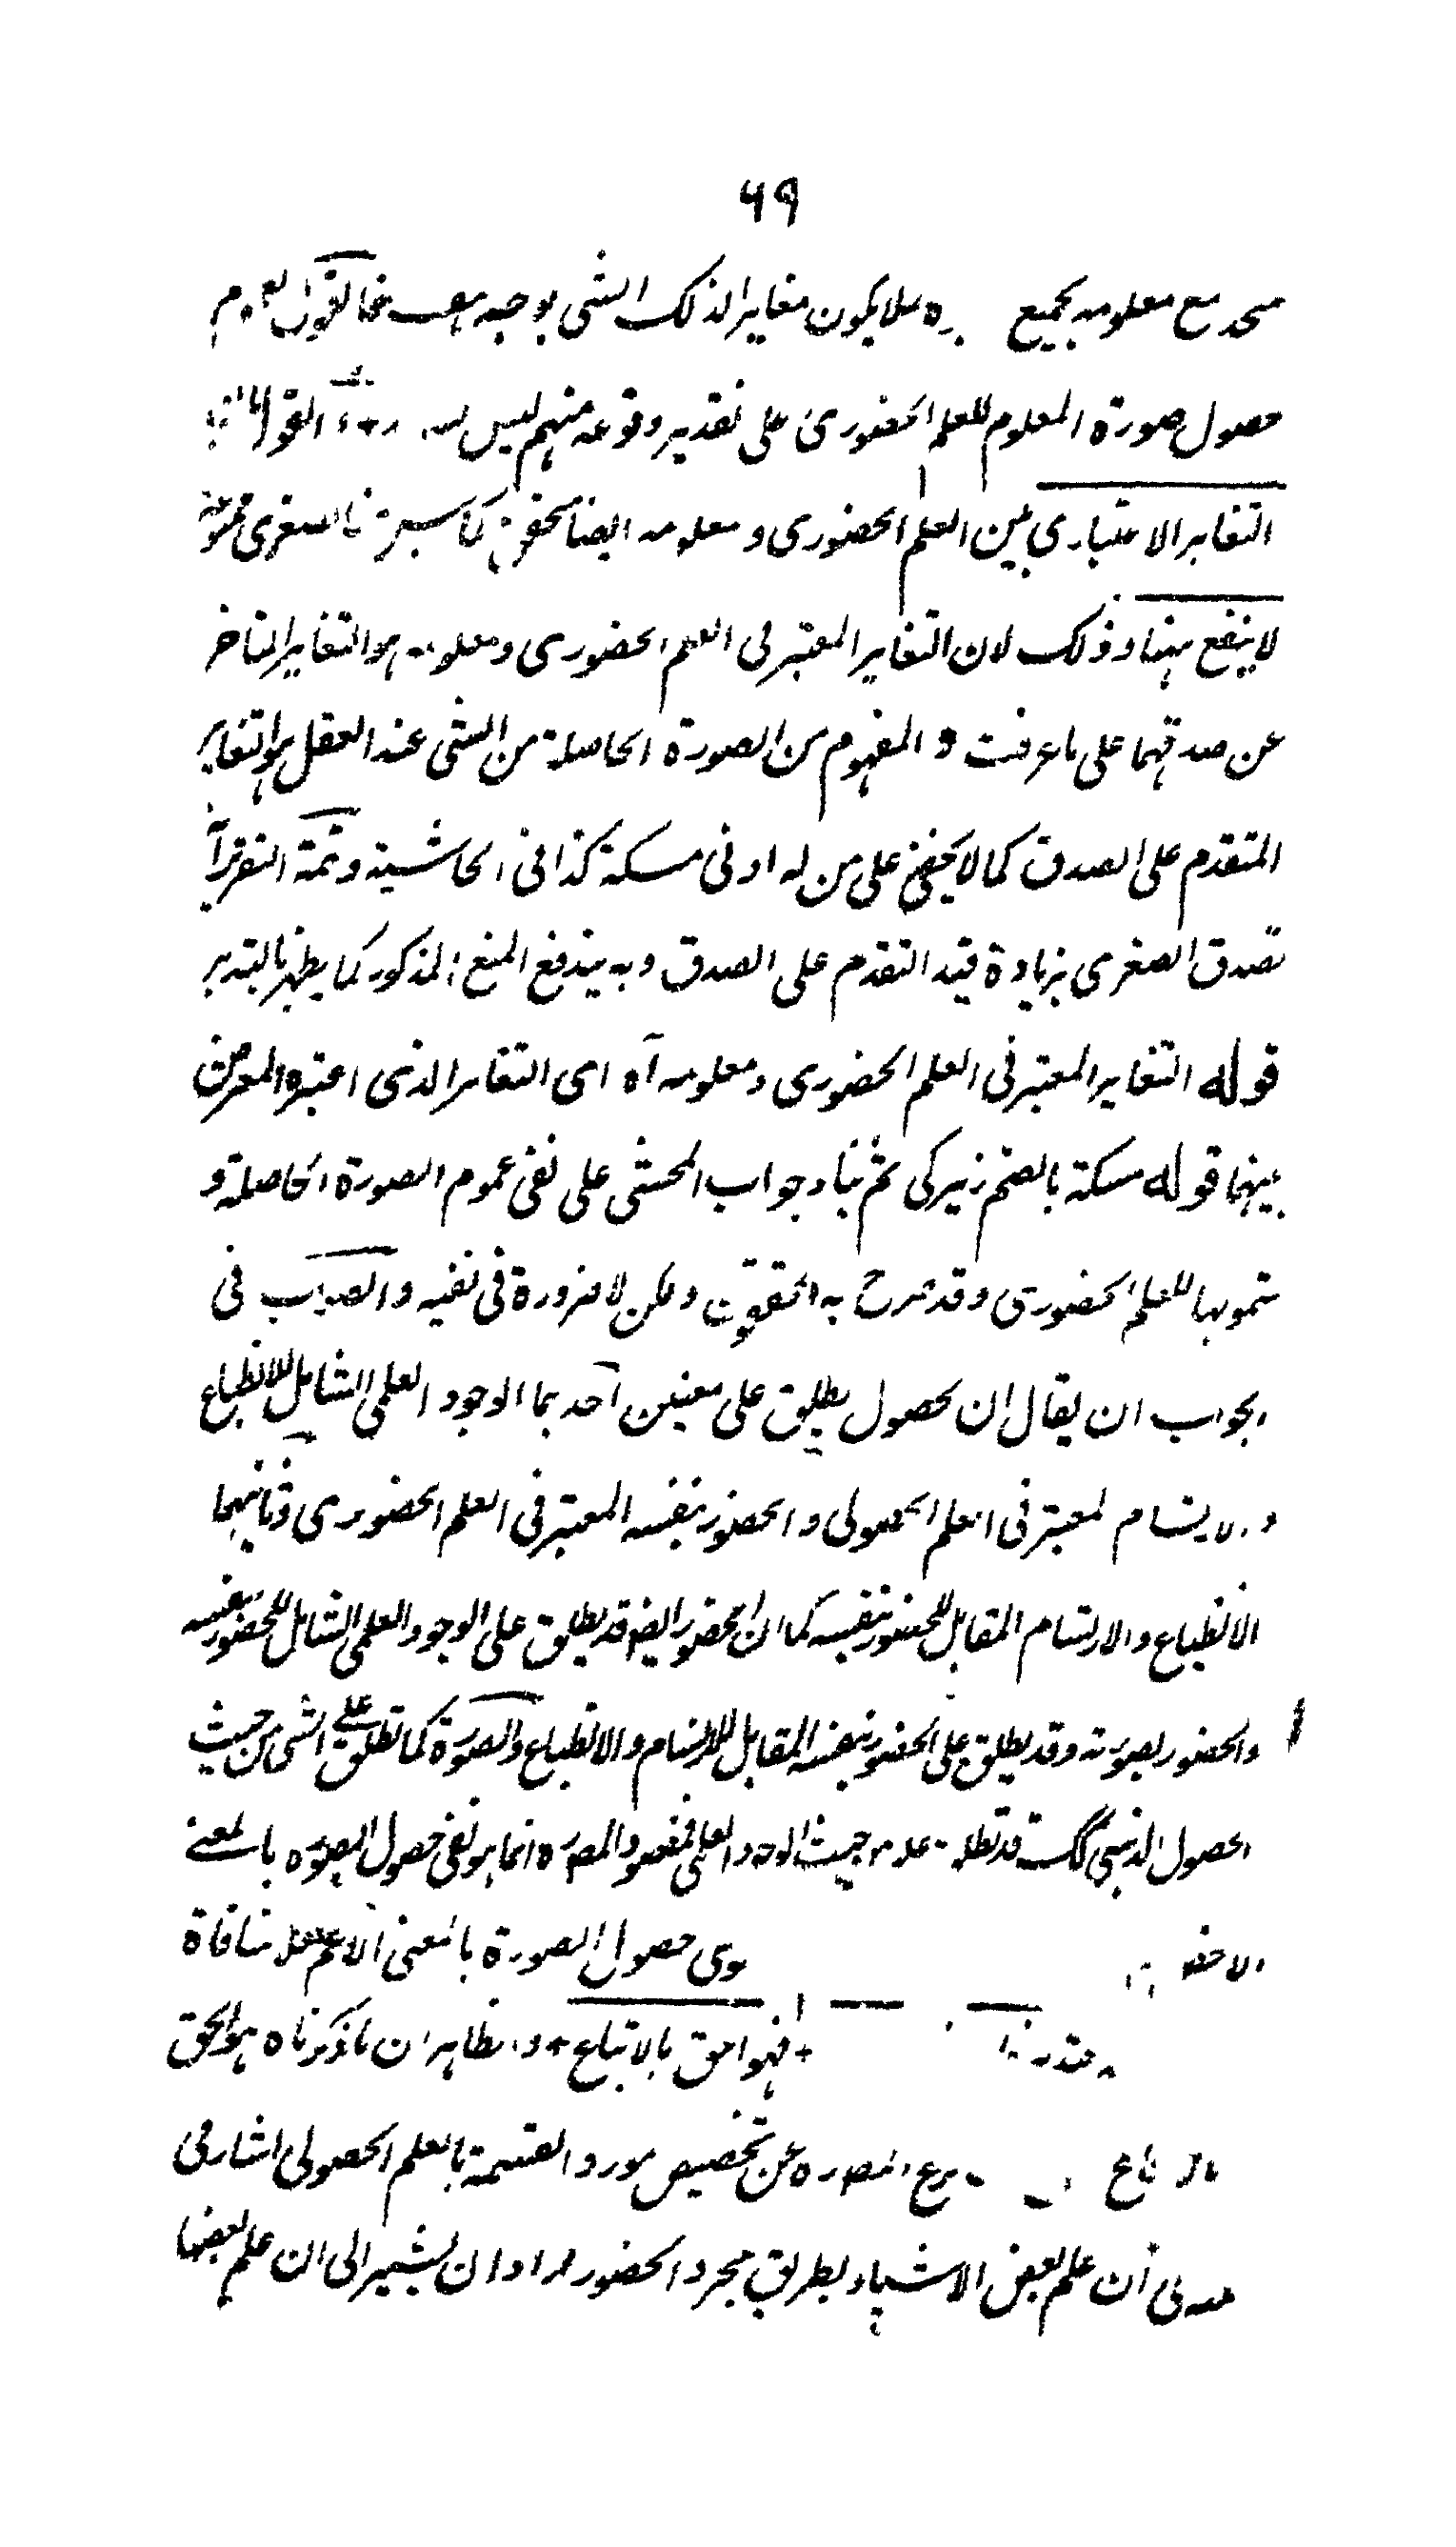 ۶۹
متحد مع معلومه بجميع فلا يكون مغايرا لذلك الشى بوجه فما لقول
حصول صورة المعلوم للعلم الحضورى على تقدير وقوعه منهم ليس القول
التغاير الاعتبارى بين العلم الحضورى و معلومه ايضا فالصغرى ممنوعة
لا ينفع ههنا وذلك لان التغاير المعتبر فى العلم الحضورى ومعلومه هو التغاير المتاخر
عن صدقهما على ما عرفت و المفهوم من الصورة الحاصلة من الشى عند العقل هو التغاير
المتقدم على الصدق كما لا يخفى على من له ادنى مسكة كذا فى الحاشية وتمة التقرير آ
تصدق الصغرى بزيادة قيد التقدم على الصدق وبه يندفع المنع المذكور كما يظهر بالتدبر
قوله التغاير المعتبر فى العلم الحضورى ومعلومه آه اى التغاير الذى اعتبره المعترض
بينهما قوله مسكة بالضم زيركى ثم بناء جواب المحشى على نفى عموم الصورة الحاصلة و
شمولها للعلم الحضورى وقد صرح به المحققون ولكن لا ضرورة فى نفيه والصواب فى
الجواب ان يقال ان الحصول يطلق على معنيين احدهما الوجود العلمى الشامل للانطباع
و الارتسام المعتبر فى العلم الحصولى و الحضور بنفسه المعتبر فى العلم الحضورى وثانيهما
الانطباع والارتسام المقابل للحضور بنفسه كما ان الحضور ايضا قد يطلق على الوجود العلمى الشامل للحضور بنفسه
والحضور بصورته وقد يطلق على الحضور بنفسه المقابل للارتسام والانطباع والصورة كما تطلق على الشى من حيث
الحصول الذهنى كك قد تطلق على من حيث الوجود العلمى فمقصود المصره انما هو نفى حصول الصورة بالمعنى
الاخص حصول الصورة بالمعنى الاعم فلا منافاة
فهو احق بالاتباع و الظاهر ان ما ذكرناه هو الحق
بالاتباع المصره عن تخصيص مورد القسمة بالعلم الحصولى اشار فى
ان علم بعض الاشياء بطريق مجرد الحضور اراد ان يشير الى ان علم بعضها